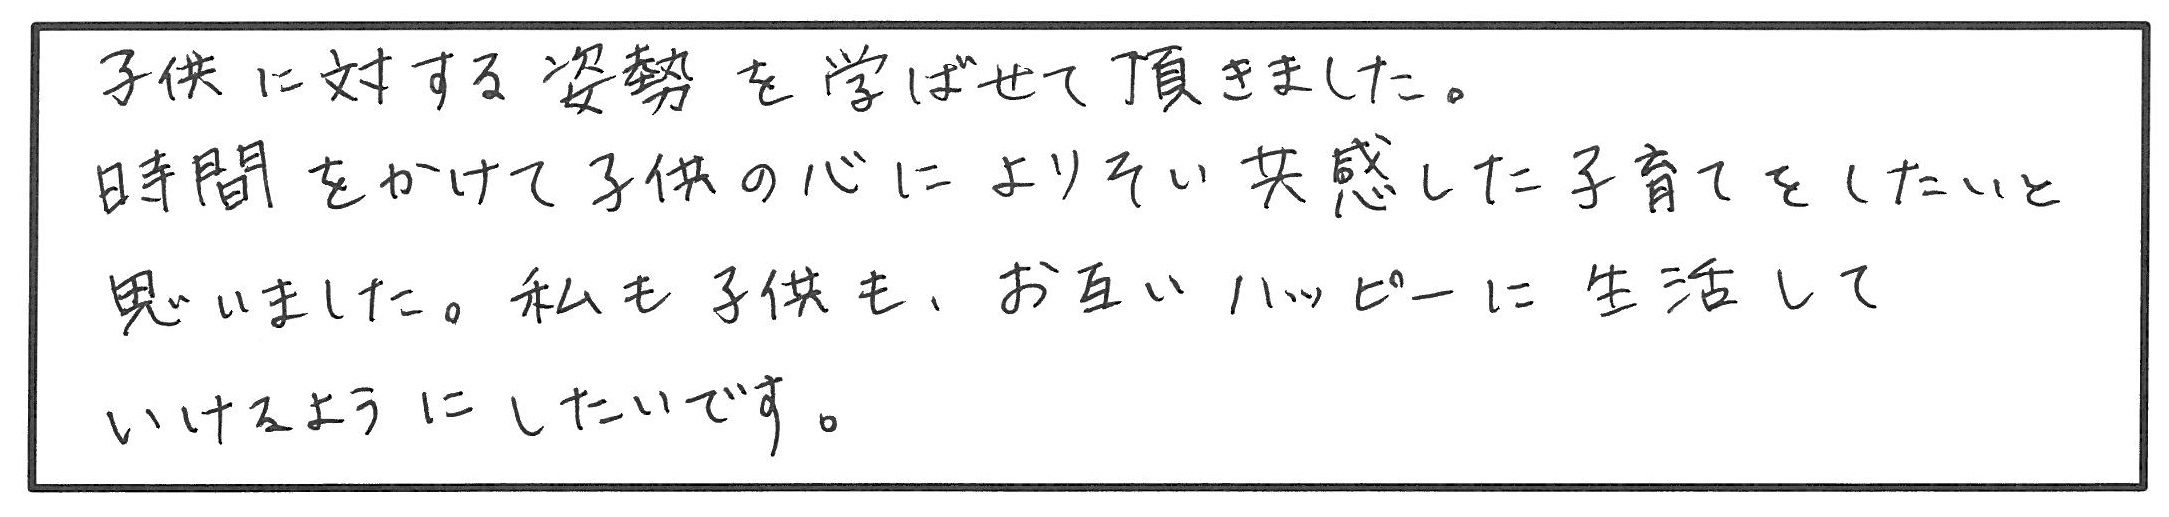 子供に対する姿勢を学ばせて頂きました。
時間をかけて子供の心によりそい共感した子育てをしたいと
思いました。私も子供も、お互いハッピーに生活して
いけるようにしたいです。